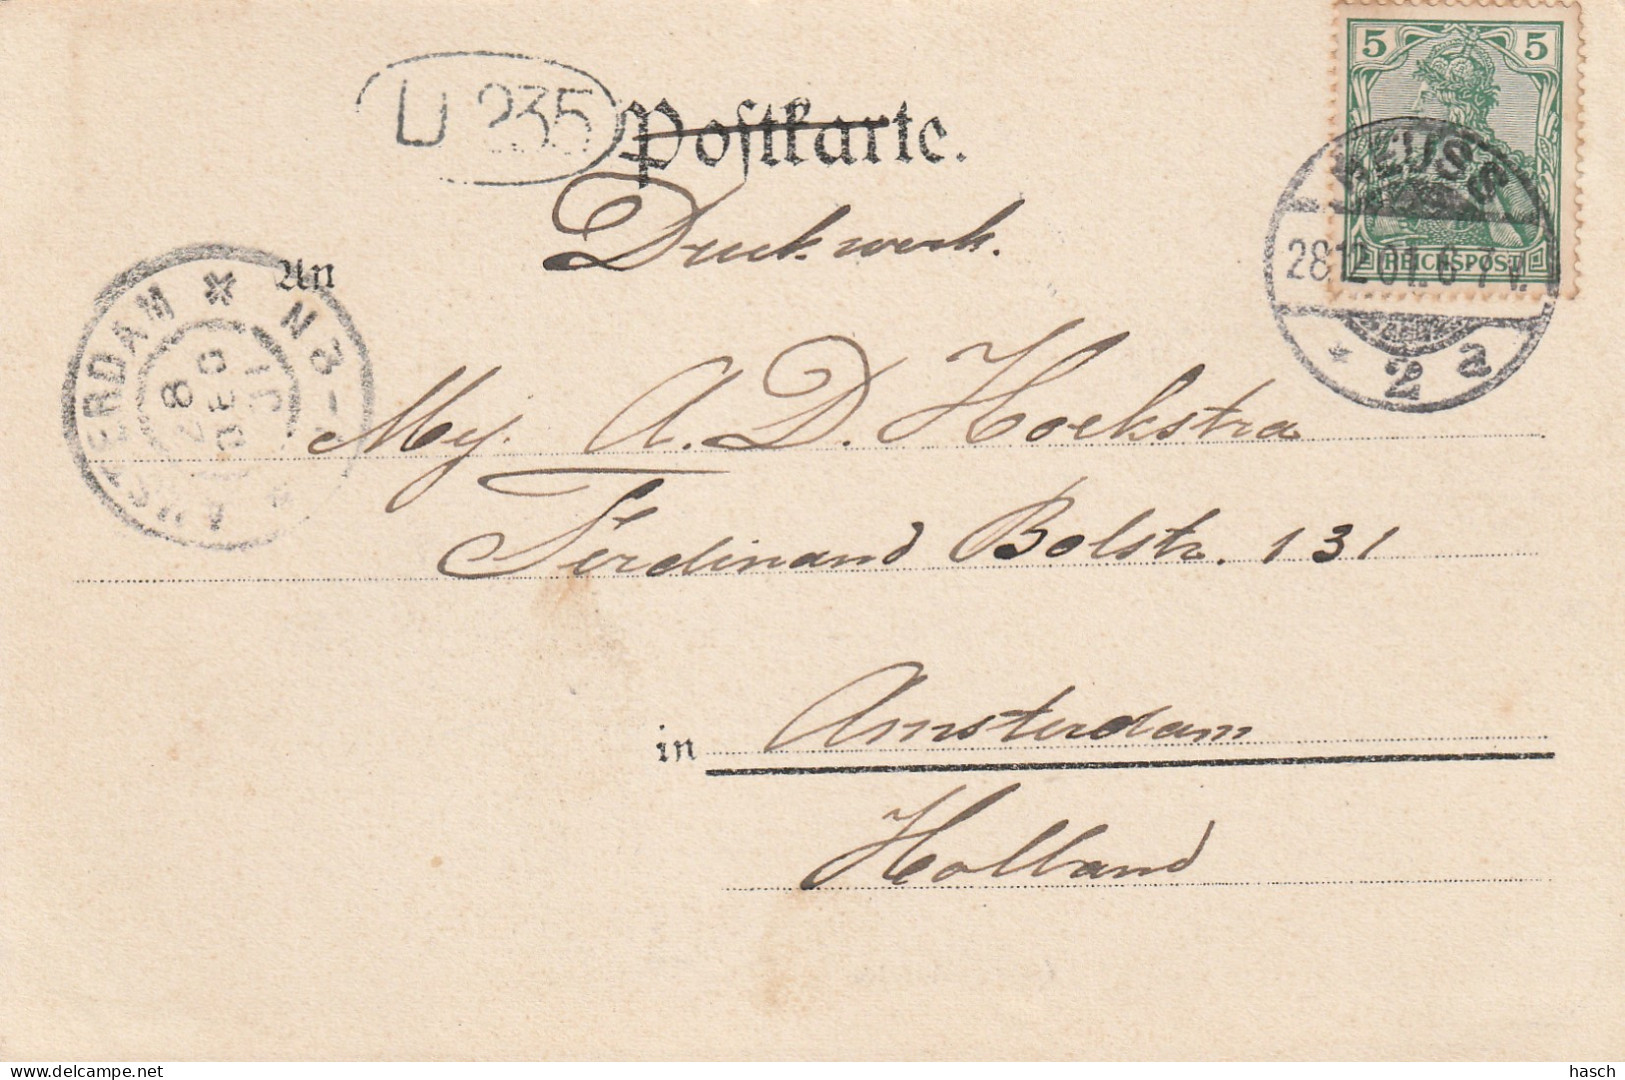 U 235
Postkarte.
Druckwerk.
5 5
REICHSPOST
NEUSS
28.12.01. 6-7 V.
* 2 a
An
AMSTERDAM
28 DEC 01
Mej. A. D. Hoekstra
Ferdinand Bolstr. 131
in Amsterdam
Holland
hasch